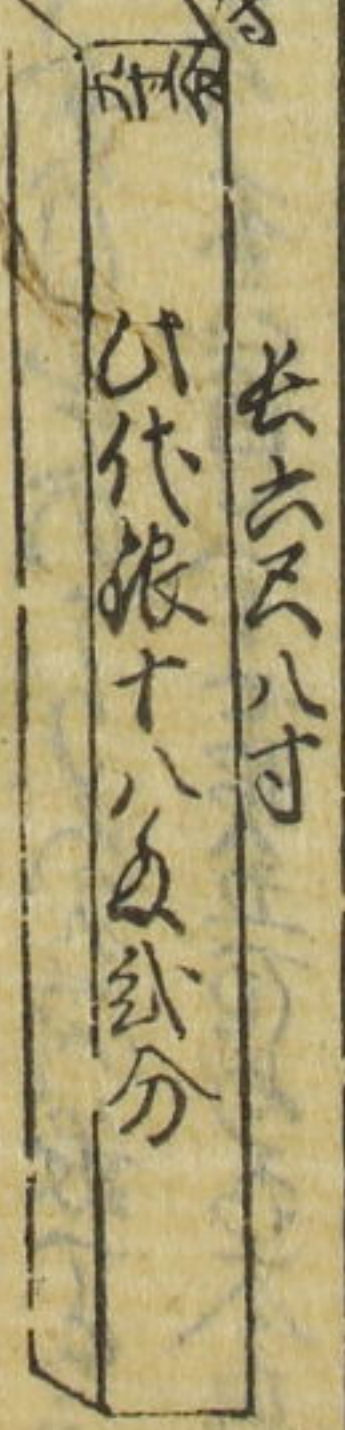 長六尺八寸
此代銀十八匁弐分